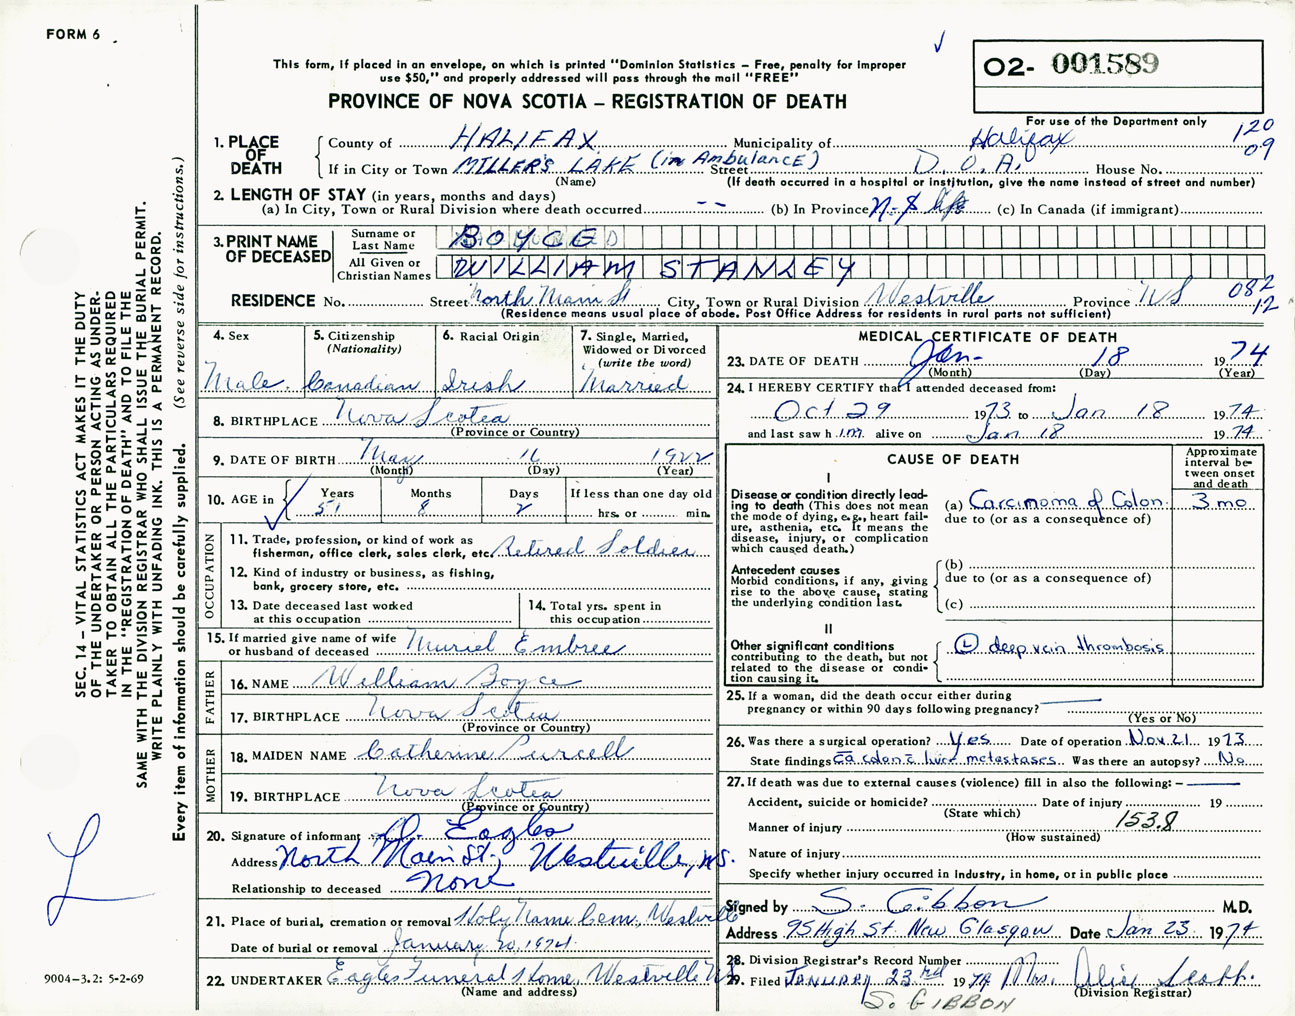 FORM 6
This form, if placed in an envelope, on which is printed "Dominion Statistics – Free, penalty for improper
use $50," and properly addressed will pass through the mail "FREE"
PROVINCE OF NOVA SCOTIA – REGISTRATION OF DEATH
O2- 001589
For use of the Department only
120
09
1. PLACE OF DEATH
County of HALIFAX Municipality of Halifax
If in City or Town MILLER'S LAKE (in Ambulance) Street D.O.A. House No.
(Name) (If death occurred in a hospital or institution, give the name instead of street and number)
2. LENGTH OF STAY (in years, months and days)
(a) In City, Town or Rural Division where death occurred -- (b) In Province N.S life (c) In Canada (if immigrant)
3. PRINT NAME OF DECEASED
Surname or Last Name BOYCE
All Given or Christian Names WILLIAM STANLEY
RESIDENCE No. Street North Main St City, Town or Rural Division Westville Province NS
082
12
(Residence means usual place of abode. Post Office Address for residents in rural parts not sufficient)
4. Sex
Male
5. Citizenship
(Nationality)
Canadian
6. Racial Origin
Irish
7. Single, Married,
Widowed or Divorced
(write the word)
Married
8. BIRTHPLACE Nova Scotia
(Province or Country)
9. DATE OF BIRTH May 16 1922
(Month) (Day) (Year)
10. AGE in Years Months Days If less than one day old
51 8 2 hrs. or min.
OCCUPATION
11. Trade, profession, or kind of work as
fisherman, office clerk, sales clerk, etc. Retired Soldier
12. Kind of industry or business, as fishing,
bank, grocery store, etc.
13. Date deceased last worked
at this occupation
14. Total yrs. spent in
this occupation
15. If married give name of wife
or husband of deceased Muriel Embree
FATHER
16. NAME William Boyce
17. BIRTHPLACE Nova Scotia
(Province or Country)
MOTHER
18. MAIDEN NAME Catherine Purcell
19. BIRTHPLACE Nova Scotia
(Province or Country)
20. Signature of informant D. Eagles
Address North Main St., Westville, NS.
Relationship to deceased None
21. Place of burial, cremation or removal Holy Name Cem, Westville
Date of burial or removal January 20, 1974
22. UNDERTAKER Eagles Funeral Home, Westville NS
(Name and address)
MEDICAL CERTIFICATE OF DEATH
23. DATE OF DEATH Jan- 18 1974
(Month) (Day) (Year)
24. I HEREBY CERTIFY that I attended deceased from:
Oct 29 1973 to Jan 18 1974
and last saw him alive on Jan 18 1974
CAUSE OF DEATH
Approximate
interval be-
tween onset
and death
I
Disease or condition directly lead-
ing to death (This does not mean
the mode of dying, e.g., heart fail-
ure, asthenia, etc. It means the
disease, injury, or complication
which caused death.)
(a) Carcinoma of Colon 3 mo
due to (or as a consequence of)
Antecedent causes
Morbid conditions, if any, giving
rise to the above cause, stating
the underlying condition last.
(b)
due to (or as a consequence of)
(c)
II
Other significant conditions
contributing to the death, but not
related to the disease or condi-
tion causing it.
(L) deep vein thrombosis
25. If a woman, did the death occur either during
pregnancy or within 90 days following pregnancy?
(Yes or No)
26. Was there a surgical operation? Yes Date of operation Nov 21 1973
State findings Ca colon c̄ liver metastases Was there an autopsy? No
27. If death was due to external causes (violence) fill in also the following: -
Accident, suicide or homicide? Date of injury 19
(State which)
153.8
Manner of injury
(How sustained)
Nature of injury
Specify whether injury occurred in Industry, in home, or in public place
Signed by S. Gibbon M.D.
Address 95 High St New Glasgow Date Jan 23 1974
28. Division Registrar's Record Number
29. Filed JANUARY 23rd 1974 Mrs. Alice Scott
(Division Registrar)
S. GIBBON
SEC. 14 – VITAL STATISTICS ACT MAKES IT THE DUTY
OF THE UNDERTAKER OR PERSON ACTING AS UNDER-
TAKER TO OBTAIN ALL THE PARTICULARS REQUIRED
IN THE "REGISTRATION OF DEATH" AND TO FILE THE
SAME WITH THE DIVISION REGISTRAR WHO SHALL ISSUE THE BURIAL PERMIT.
WRITE PLAINLY WITH UNFADING INK. THIS IS A PERMANENT RECORD.
Every item of information should be carefully supplied. (See reverse side for instructions.)
L
9004–3.2: 5-2-69